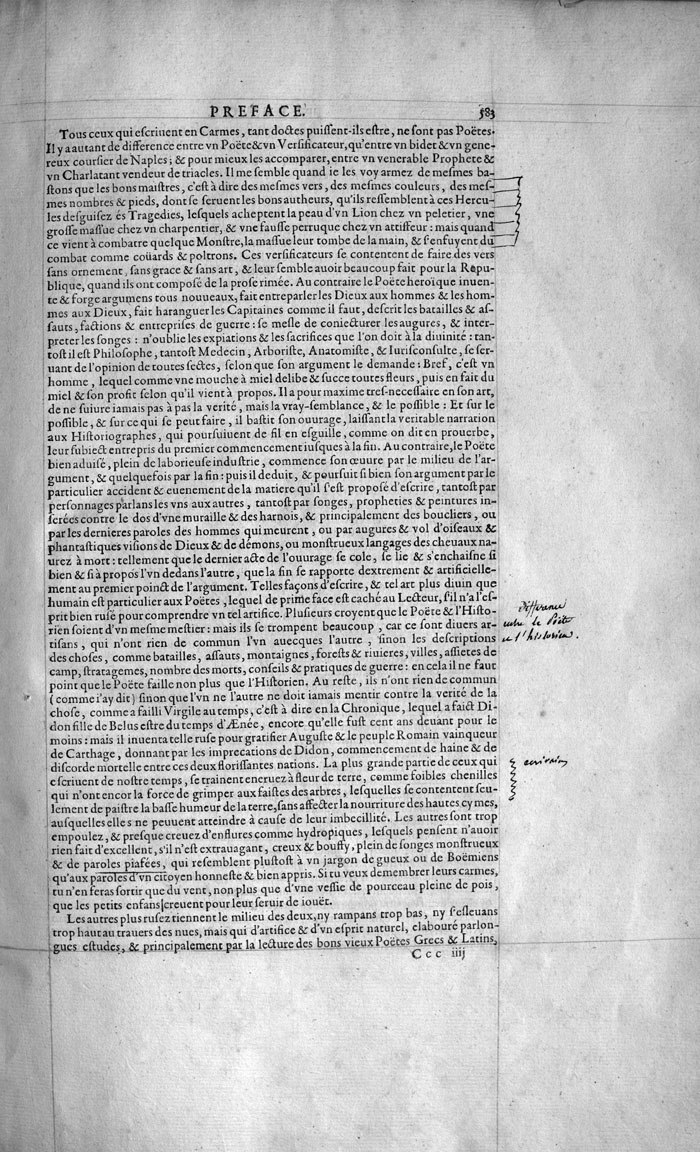 PREFACE. 583
Tous ceux qui escriuent en Carmes, tant doctes puissent-ils estre, ne sont pas Poëtes.
Il y a autant de difference entre vn Poëte & vn Versificateur, qu'entre vn bidet & vn gene-
reux coursier de Naples; & pour mieux les accomparer, entre vn venerable Prophete &
vn Charlatant vendeur de triacles. Il me semble quand ie les voy armez de mesmes ba-
stons que les bons maistres, c'est à dire des mesmes vers, des mesmes couleurs, des mes-
mes nombres & pieds, dont se seruent les bons autheurs, qu'ils ressemblent à ces Hercu-
les desguisez és Tragedies, lesquels acheptent la peau d'vn Lion chez vn peletier, vne
grosse massue chez vn charpentier, & vne fausse perruque chez vn attisseur : mais quand
ce vient à combatre quelque Monstre, la massue leur tombe de la main, & s'enfuyent du
combat comme coüards & poltrons. Ces versificateurs se contentent de faire des vers
sans ornement, sans grace & sans art, & leur semble auoir beaucoup fait pour la Repu-
blique, quand ils ont composé de la prose rimée. Au contraire le Poëte heroïque inuen-
te & forge argumens tous nouueaux, fait entreparler les Dieux aux hommes & les hom-
mes aux Dieux, fait haranguer les Capitaines comme il faut, descrit les batailles & as-
sauts, factions & entreprises de guerre : se mesle de coniecturer les augures, & inter-
preter les songes : n'oublie les expiations & les sacrifices que l'on doit à la diuinité : tan-
tost il est Philosophe, tantost Medecin, Arboriste, Anatomiste, & Iurisconsulte, se ser-
uant de l'opinion de toutes sectes, selon que son argument le demande : Bref, c'est vn
homme, lequel comme vne mouche à miel delibe & succe toutes fleurs, puis en fait du
miel & son profit selon qu'il vient à propos. Il a pour maxime tres-necessaire en son art,
de ne suiure iamais pas à pas la verité, mais la vray-semblance, & le possible : Et sur le
possible, & sur ce qui se peut faire, il bastit son ouurage, laissant la veritable narration
aux Historiographes, qui poursuiuent de fil en esguille, comme on dit en prouerbe,
leur subiect entrepris du premier commencement iusques à la fin. Au contraire, le Poëte
bien aduisé, plein de laborieuse industrie, commence son œuure par le milieu de l'ar-
gument, & quelquefois par la fin : puis il deduit, & poursuit si bien son argument par le
particulier accident & euenement de la matiere qu'il s'est proposé d'escrire, tantost par
personnages parlans les vns aux autres, tantost par songes, propheties & peintures in-
serées contre le dos d'vne muraille & des harnois, & principalement des boucliers, ou
par les dernieres paroles des hommes qui meurent, ou par augures & vol d'oiseaux &
phantastiques visions de Dieux & de démons, ou monstrueux langages des cheuaux na-
urez à mort : tellement que le dernier acte de l'ouurage se cole, se lie & s'enchaisne si
bien & si à propos l'vn dedans l'autre, que la fin se rapporte dextrement & artificielle-
ment au premier poinct de l'argument. Telles façons d'escrire, & tel art plus diuin que
humain est particulier aux Poëtes, lequel de prime face est caché au Lecteur, s'il n'a l'es-
prit bien rusé pour comprendre vn tel artifice. Plusieurs croyent que le Poëte & l'Histo-
rien soient d'vn mesme mestier : mais ils se trompent beaucoup, car ce sont diuers ar-
tisans, qui n'ont rien de commun l'vn auecques l'autre, sinon les descriptions
des choses, comme batailles, assauts, montaignes, forests & riuieres, villes, assietes de
camp, stratagemes, nombre des morts, conseils & pratiques de guerre : en cela il ne faut
point que le Poëte faille non plus que l'Historien. Au reste, ils n'ont rien de commun
(comme i'ay dit) sinon que l'vn ne l'autre ne doit iamais mentir contre la verité de la
chose, comme a failli Virgile au temps, c'est à dire en la Chronique, lequel a faict Di-
don fille de Belus estre du temps d'Ænée, encore qu'elle fust cent ans deuant pour le
moins : mais il inuenta telle ruse pour gratifier Auguste & le peuple Romain vainqueur
de Carthage, donnant par les imprecations de Didon, commencement de haine & de
discorde mortelle entre ces deux florissantes nations. La plus grande partie de ceux qui
escriuent de nostre temps, se trainent eneruez à fleur de terre, comme foibles chenilles
qui n'ont encor la force de grimper aux faistes des arbres, lesquelles se contentent seu-
lement de paistre la basse humeur de la terre, sans affecter la nourriture des hautes cymes,
ausquelles elles ne peuuent atteindre à cause de leur imbecillité. Les autres sont trop
empoulez, & presque creuez d'enflures comme hydropiques, lesquels pensent n'auoir
rien fait d'excellent, s'il n'est extrauagant, creux & bouffy, plein de songes monstrueux
& de paroles piafées, qui resemblent plustost à vn jargon de gueux ou de Boëmiens
qu'aux paroles d'vn citoyen honneste & bien appris. Si tu veux demembrer leurs carmes,
tu n'en feras sortir que du vent, non plus que d'vne vessie de pourceau pleine de pois,
que les petits enfans creuent pour leur seruir de iouët.
Les autres plus rusez tiennent le milieu des deux, ny rampans trop bas, ny s'esleuans
trop haut au trauers des nues, mais qui d'artifice & d'vn esprit naturel, elabouré par lon-
gues estudes, & principalement par la lecture des bons vieux Poëtes Grecs & Latins,
Ccc iiij
Difference
entre le Poëte
et l'historien.